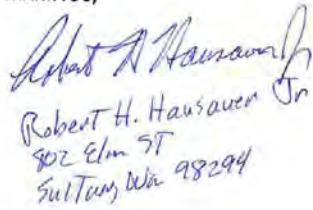 Robert H Hausauer Jr
Robert H. Hausauer Jr
802 Elm ST
Sultan, Wa 98294